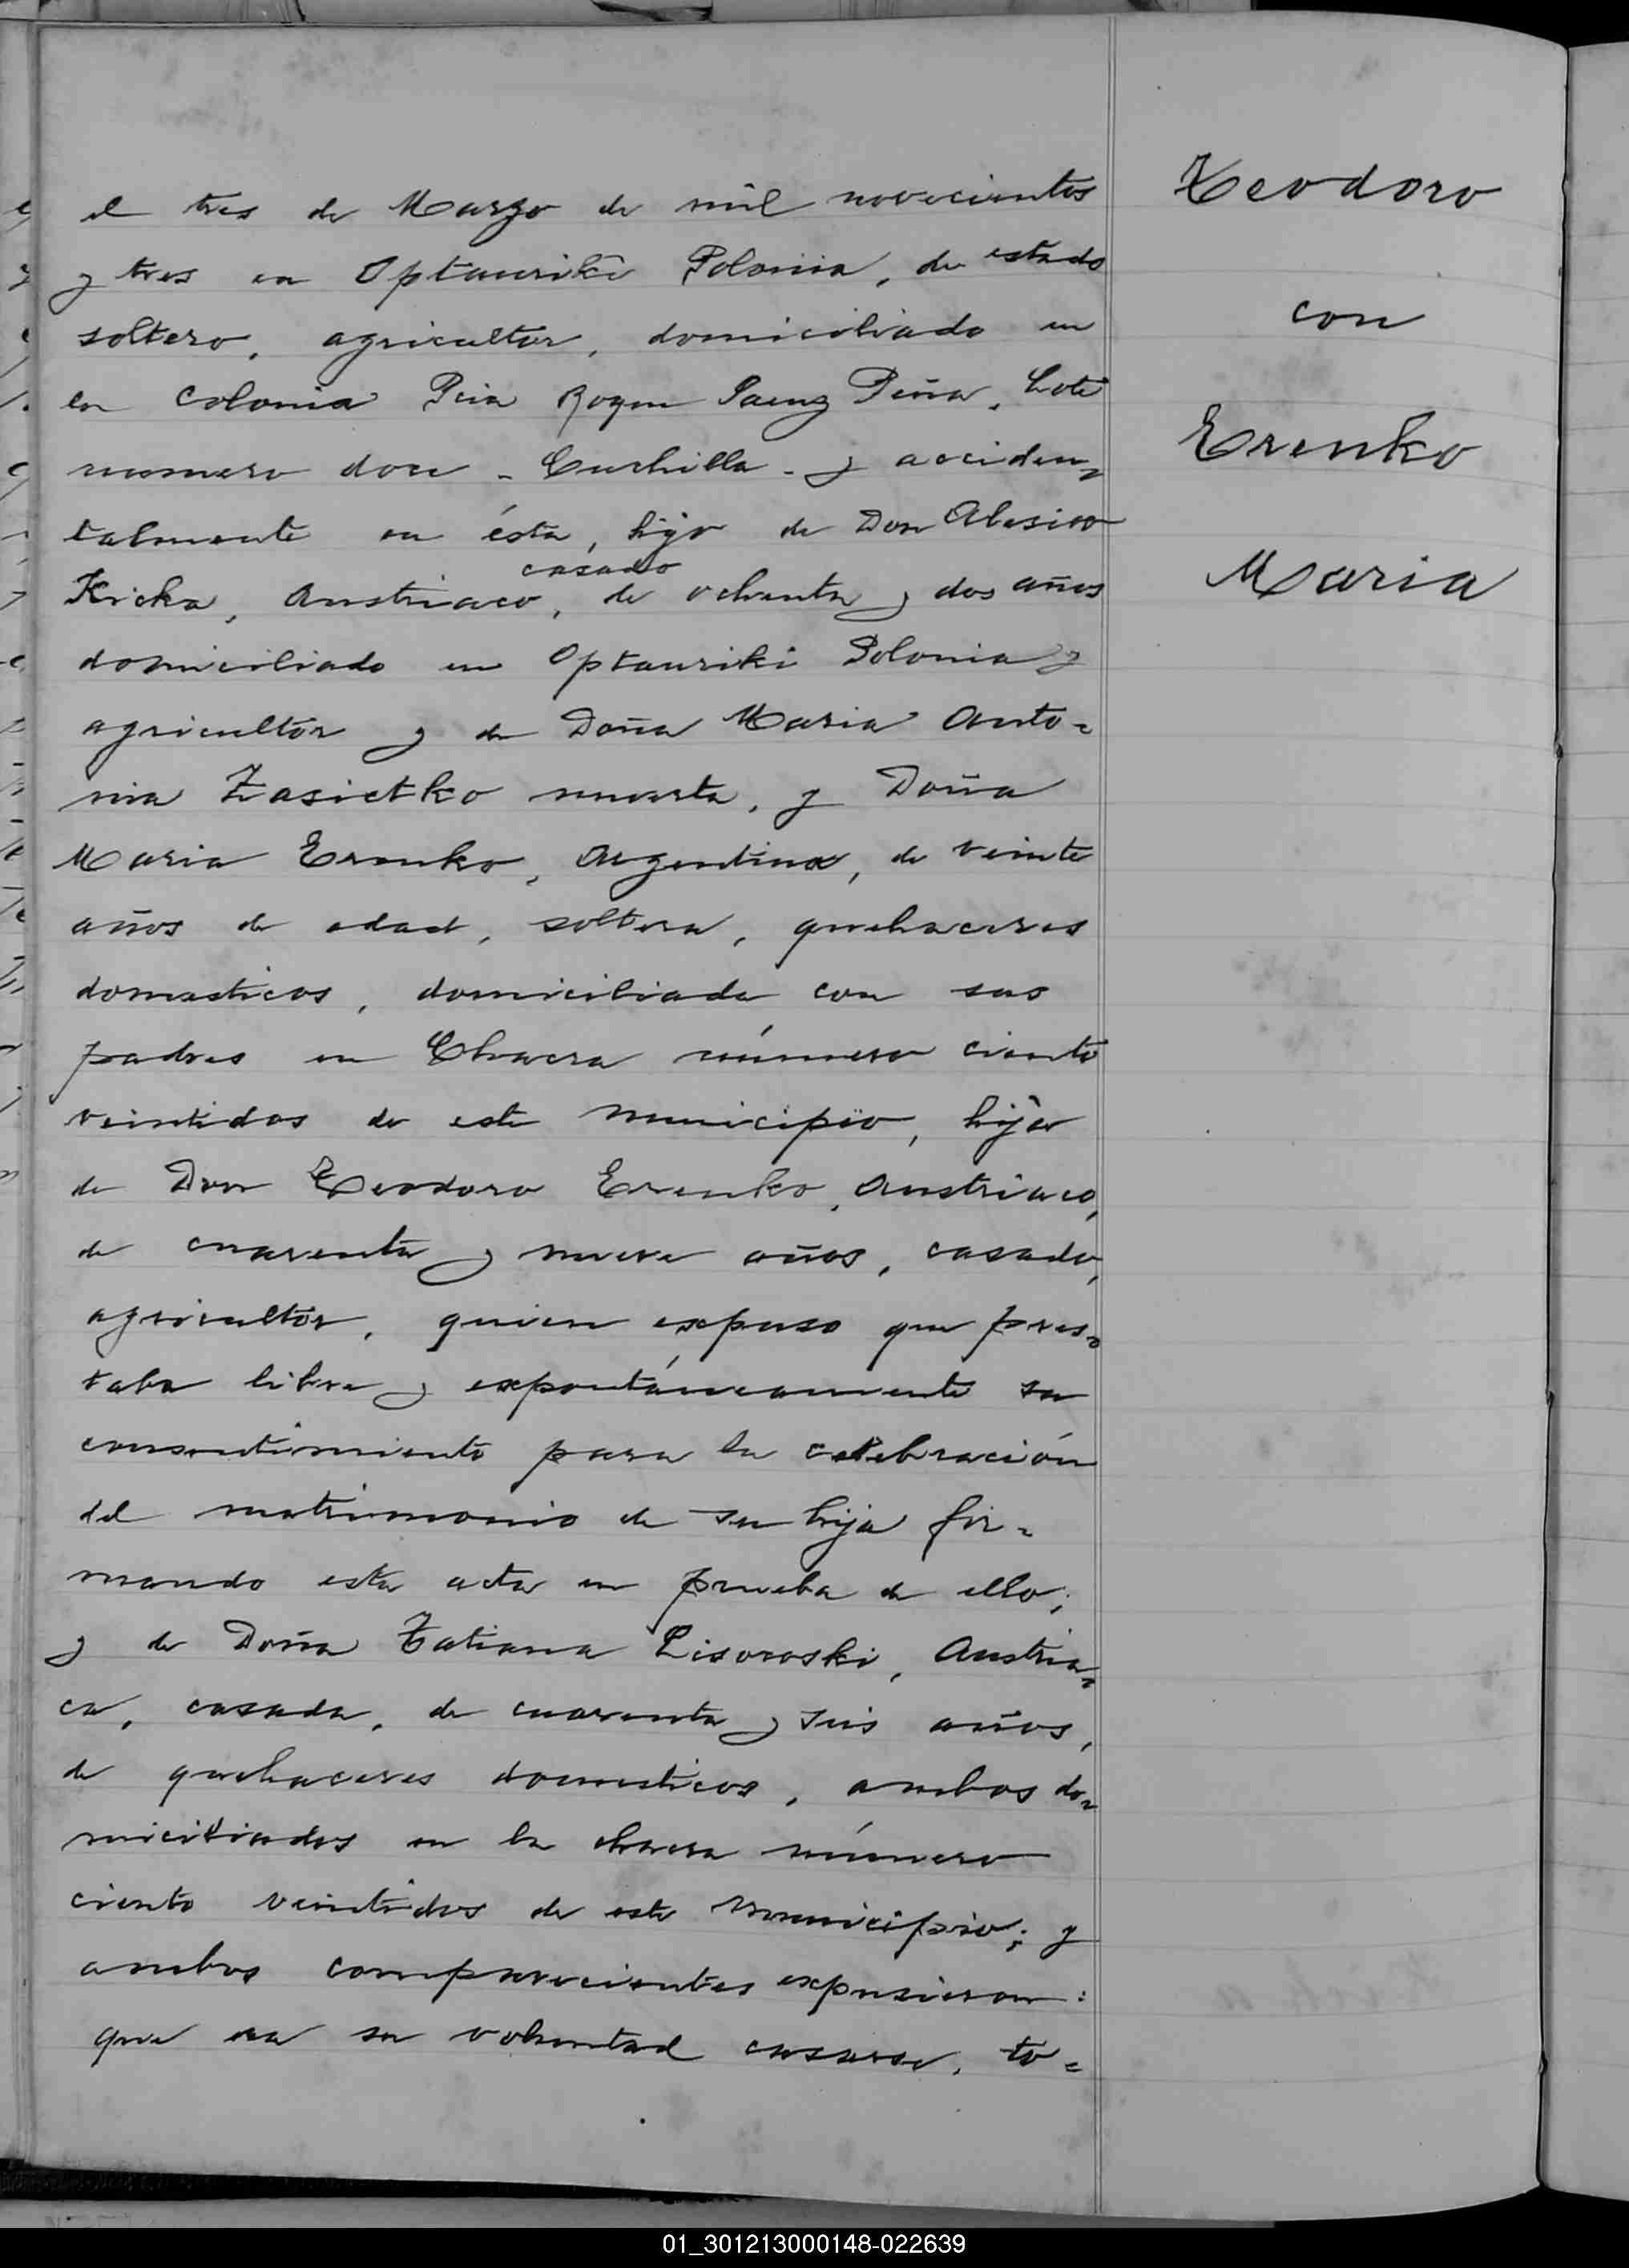 el tres de Marzo de mil novecientos
y tres en Optauriki Polonia, de estado
soltero, agricultor, domiciliado en
la Colonia Pcia Roque Saenz Peña, Lote
numero doce - Cuchilla - y acciden-
talmente en ésta, hijo de Don Alesico
casado
Kicka, Austriaco, de ochenta y dos años
domiciliado en Optauriki Polonia y
agricultor y de Doña Maria Anto-
nia Zasietko muerta, y Doña
Maria Erenko, Argentina, de veinte
años de edad, soltera, quehaceres
domesticos, domiciliada con sus
padres en Chacra número ciento
veintidos de este municipio, hija
de Don Teodoro Erenko, Austriaco,
de cuarenta y nueve años, casado,
agricultor, quien expuso que pres-
taba libre y expontáneamente su
consentimiento para la celebración
del matrimonio de su hija fir-
mando esta acta en prueba de ello;
y de Doña Tatiana Lisovoski, Austria-
ca, casada, de cuarenta y seis años,
de quehaceres domesticos, ambos do-
miciliados en la chacra número
ciento veintidos de este Municipio; y
ambos comparecientes expusieron:
que era su voluntad casarse, to-
Teodoro
con
Erenko
Maria
01_301213000148-022639